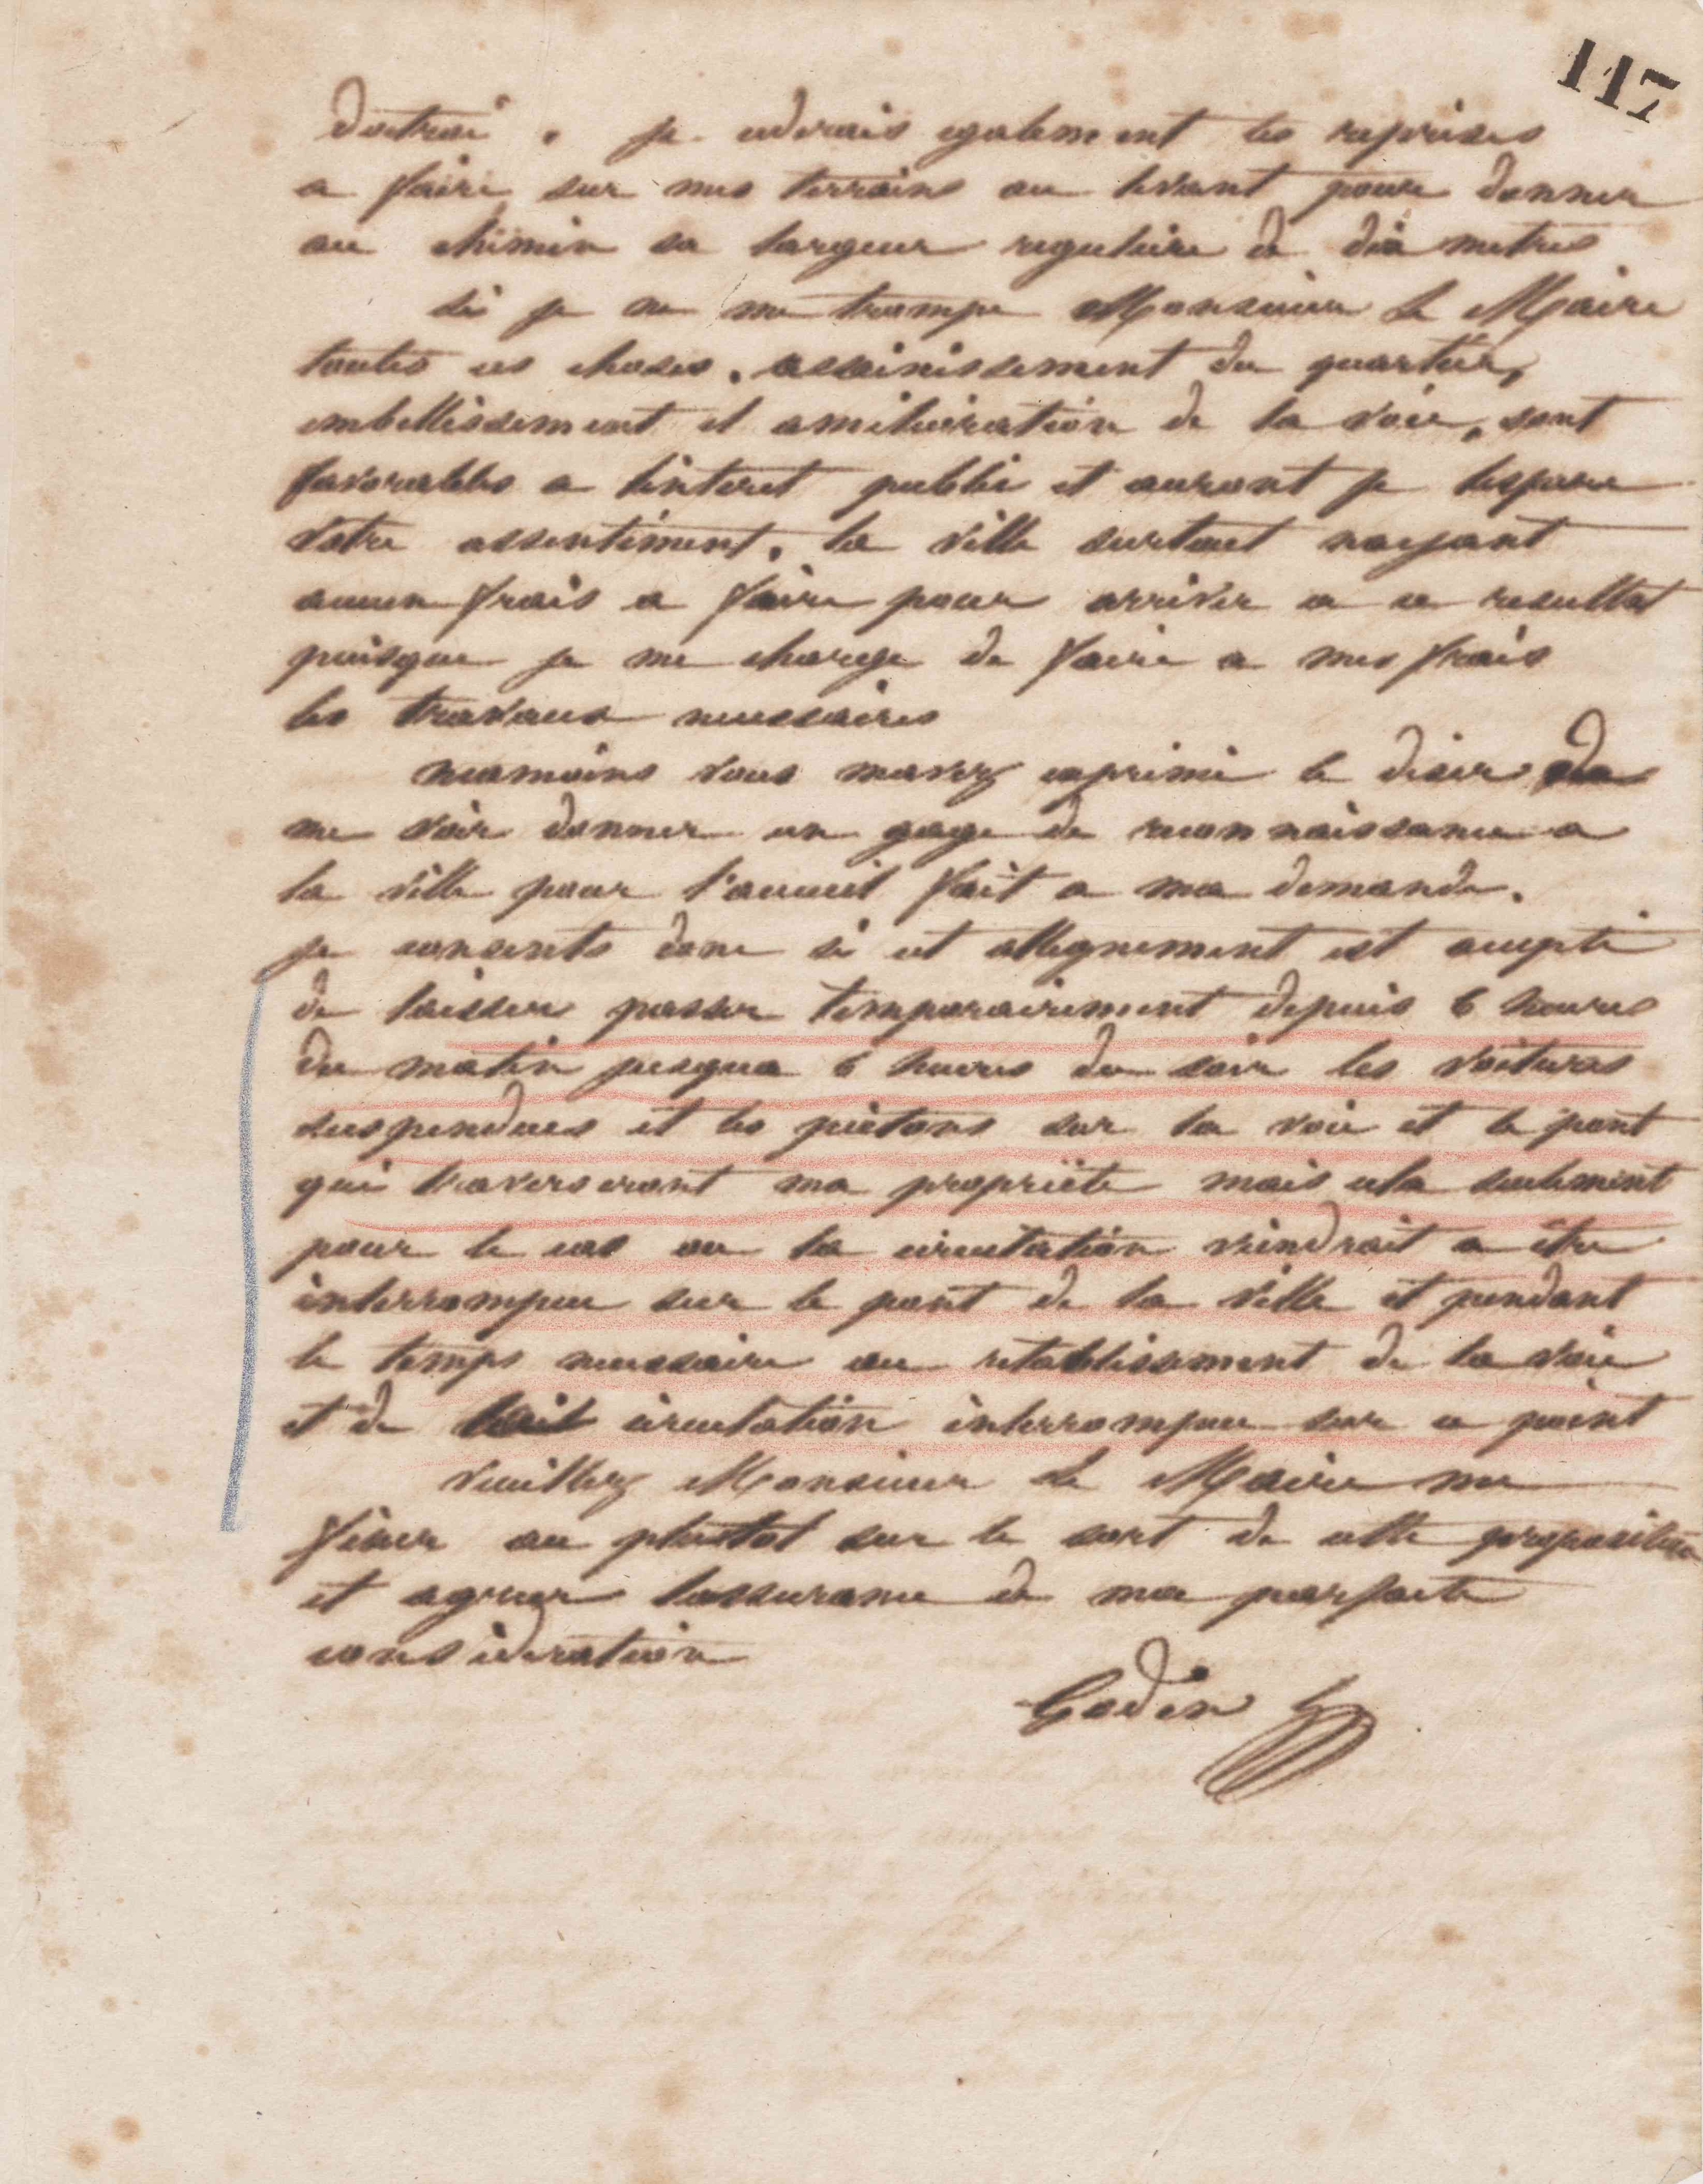 117
doctroi . je cederais egalement les reprises
a faire sur mes terrains au levant pour donner
au chemin sa largeur reguliere de dix metres
si je ne me trompe Monsieur le Maire
toutes ces choses, assainissement du quartier,
embellissement et amelioration de la voie, sont
favorables a linteret public et auront je lespere
votre assentiment, la ville surtout nayant
aucun frais a faire pour arriver a ce resultat
puisque je me charge de faire a mes frais
les travaux necessaires
neamoins vous mavez exprimé le desir de
me voir donner un gage de reconnaissance a
la ville pour l'accueil fait a ma demande.
je consents donc si cet allignement est accepté
de laisser passer temporairement depuis 6 heures
du matin jusqua 6 heures du soir les voitures
suspendues et les piétons sur la voie et le pont
qui traverseront ma propriété mais cela seulement
pour le cas ou la circulation viendrait a être
interrompue sur le pont de la ville et pendant
le temps necessaire au retablissement de la voie
et de circulation interrompue sur ce point
Veuillez Monsieur le Maire me
fixer au plustot sur le sort de cette proposition
et agreer lassurance de ma parfaite
consideration
Godin